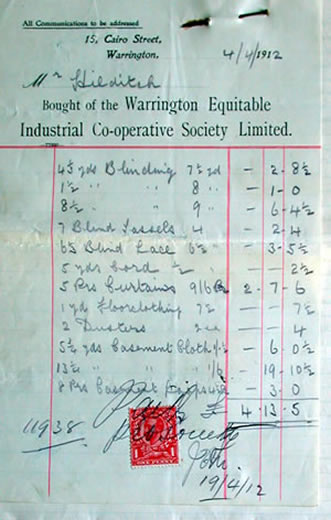 All Communications to be addressed
15, Cairo Street,
Warrington, 4/4/1912
Mr Hilditch
Bought of the Warrington Equitable
Industrial Co-operative Society Limited.
4½ yds Blinding 7½ yd - 2 - 8½
1½ " " 8 - 1 - 0
8½ " " 9 - 6 - 4½
7 Blind Tassels 4 - 2 - 4
6½ Blind Lace 6½ " - 3 - 5½
5 yds Cord ½ " - - 2½
5 Prs Curtains 9/6 2 - 7 - 6
1 yd Floorclothing 7½ - - 7½
2 Dusters 2 - - 4
5½ yds Casement Cloth - 6 - 0½
13½ " " 1/5½ - 19 - 10½
8 Prs Casement - 3 - 0
£ 4 - 13 - 5
11938
ONE PENNY
19/4/12